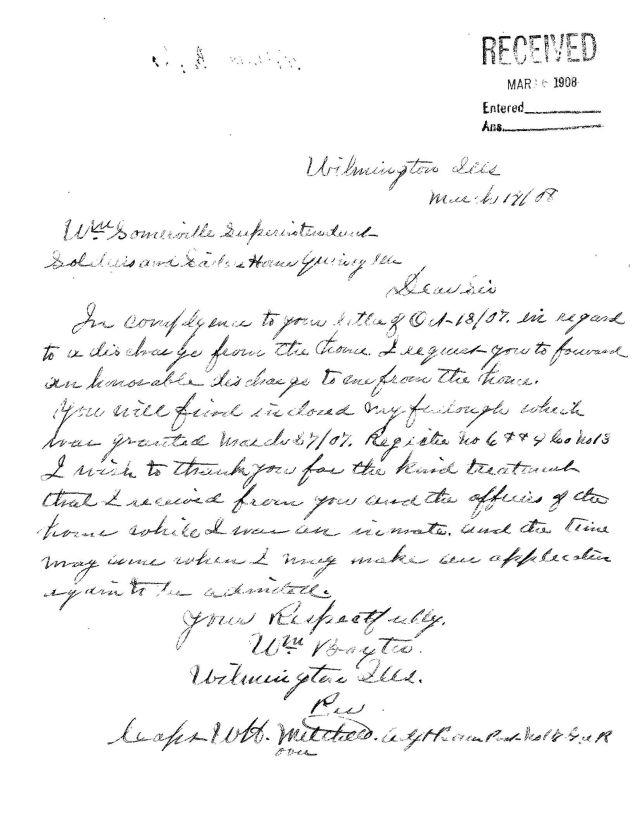 RECEIVED
MAR 6 1908
Entered
Ans.
Wilmington Ills
March 17/08
Wm Somerville Superintendent
Soldiers and Sailors Home Quincy Ills
Dear Sir
In complyence to your letter of Oct-18/07. in regard
to a discharge from the home. I request you to forward
an honorable discharge to me from the home.
You will find inclosed my furlough which
was granted March 27/07. Register No Co No 13
I wish to thank you for the kind treatment
that I received from you and the officers of the
home while I was an inmate. and the time
may come when I may make an application
again to be admitted.
Yours Respectfully.
Wm
Wilmington Ills.
Per
W H. Mitchell. Post No G A R
over